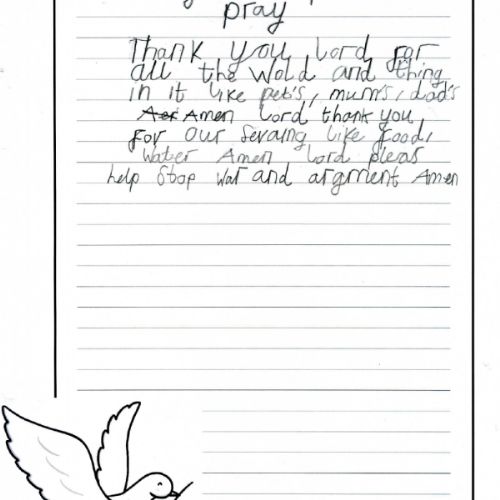 pray
Thank you Lord for
all the wold and thing
in it like pet's, mum's, dad's
Amen Lord thank you
for our serving like food,
water Amen Lord pleas
help stop war and argment Amen